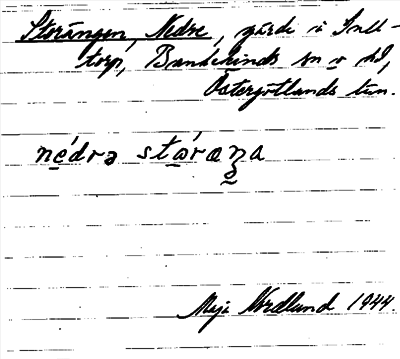 Storängen, Nedre, gärde i Sull-
torp, Bankekinds sn o hd,
Östergötlands län.
nédrə stóraŋa
Maja Nordlund 1944.